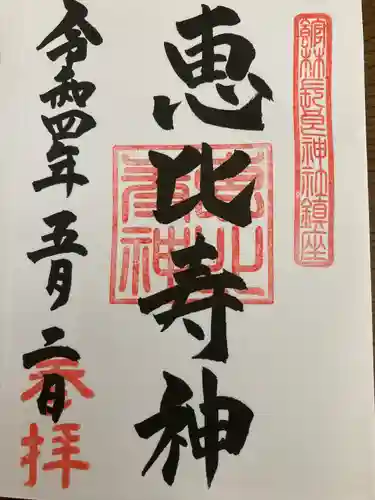 館林長良神社鎮座
恵比寿神
恵比寿神
令和四年五月二日
参拝